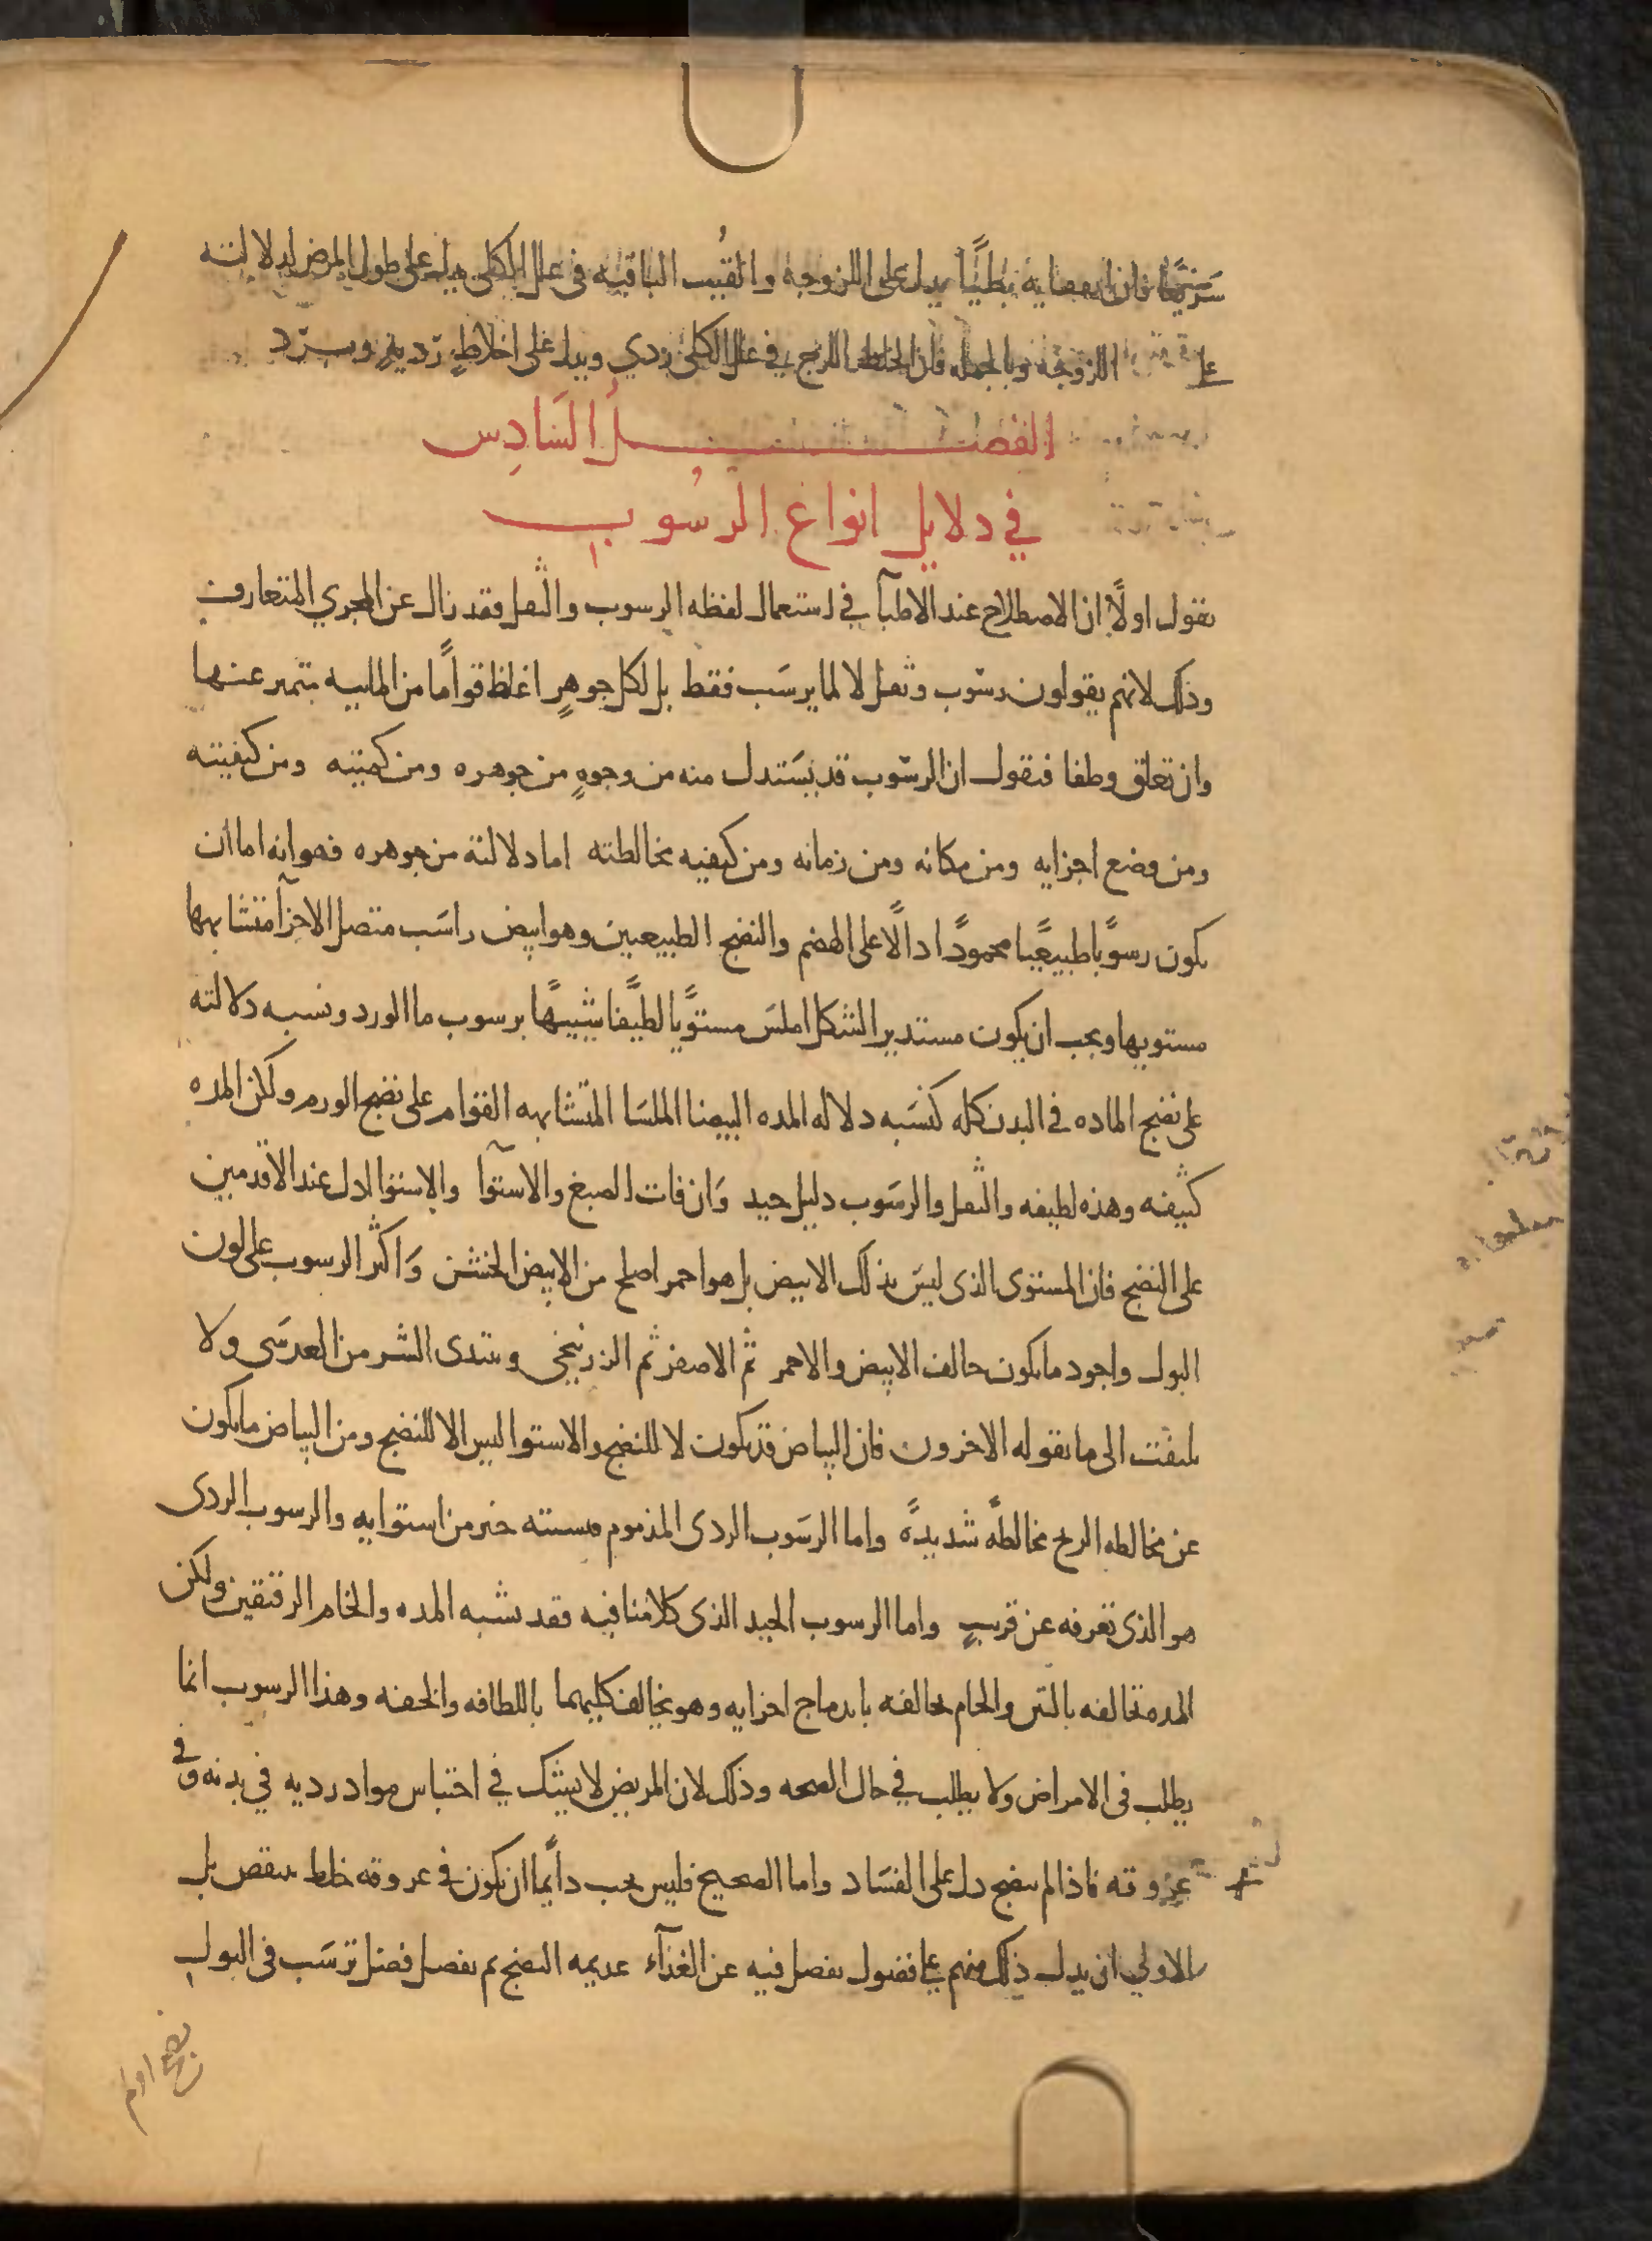 سريعًا فان انفقايه بطيًا يدل على اللزوجة والقبب الباقيه في علل الكلى يدل على طول المرض لدلالته
على اللزوجه وبالجمله فان الخلط اللزج في علل الكلى ردي ويدل على اخلاطٍ رديةٍ وبرد
الفصل السادس
في دلايل انواع الرسوب
نقول اولًا ان الاصطلاح عند الاطبآ في استعمال لفظه الرسوب والثفل فقد زال عن المجري المتعارف
وذلك لانهم يقولون رسوب وثفل لا لما يرسب فقط بل لكل جوهرٍ اغلظ قوامًا من الماييه متميز عنها
وان تعلق وطفا فنقول ان الرسوب قد يستدل منه من وجوهٍ من جوهره ومن كميته ومن كيفيته
ومن وضع اجزايه ومن مكانه ومن زمانه ومن كيفيه مخالطته اما دلالته من جوهره فهو انه اما ان
يكون رسوبًا طبيعيًا محمودًا دالًا على الهضم والنضج الطبيعيين وهو ابيض راسب متصل الاجزآ متشابهها
مستويها ويجب ان يكون مستدير الشكل املس مستويًا لطيفًا شبيهًا برسوب ما الورد ونسبه دلالته
على نضج الماده في البدن كله كنسبه دلاله المده البيضا الملسا المتشابهه القوام على نضج الورم ولكن المده
كثيفه وهذه لطيفه والثفل والرسوب دليل جيد وان فات الصبغ والاستوآ والاستوا ادل عند الاقدمين
على النضج فان المستوى الذى ليس بذلك الابيض بل هو احمر اصلح من الابيض الخشن واكثر الرسوب على لون
البول واجود ما يكون خالف الابيض والاحمر ثم الاصفر ثم الزرنيخي ويبتدى الشر من العدسى ولا
يلتفت الى ما يقوله الاخرون فان البياض قد يكون لا للنضج والاستوا ليس الا للنضج ومن البياض ما يكون
عن مخالطه الريح مخالطةً شديدةً واما الرسوب الردى المذموم خير من استوايه والرسوب الردى
هو الذى تعرفه عن قريبٍ واما الرسوب الجيد الذى كلامنا فيه فقد يشبه المده والخام الرقيقين ولكن
المده تخالفه بالنتن والخام يخالفه باندماج اجزايه وهو يخالف كليهما باللطافه والخفه وهذا الرسوب انما
يطلب في الامراض ولا يطلب في حال الصحه وذلك لان المريض لا يشك في احتباس مواد رديه في بدنه وفي
عروقه فاذا لم ينضج دل على الفساد واما الصحيح فليس يجب دايمًا ان يكون في عروقه خلط ينقص بل
الاولي ان يدل ذلك منهم على فضول يفضل فيه عن الغذآء عديمه النضج ثم يفصل فضل ترسب في البول